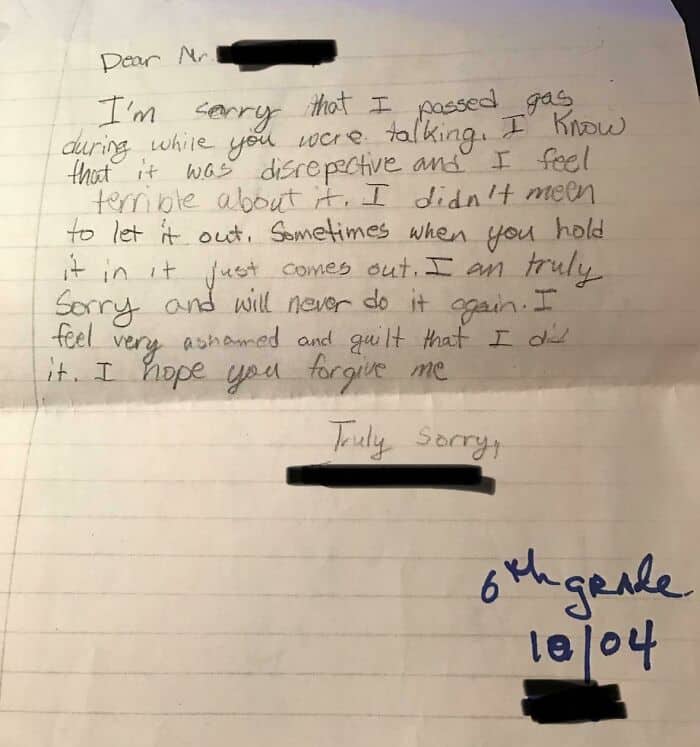 Dear Mr.
I'm sorry that I passed gas
during while you were talking. I Know
that it was disrepective and I feel
terrible about it. I didn't meen
to let it out. Sometimes when you hold
it in it just comes out. I am truly
Sorry and will never do it again. I
feel very ashamed and guilt that I did
it. I hope you forgive me
Truly Sorry,
6th grade
10/04